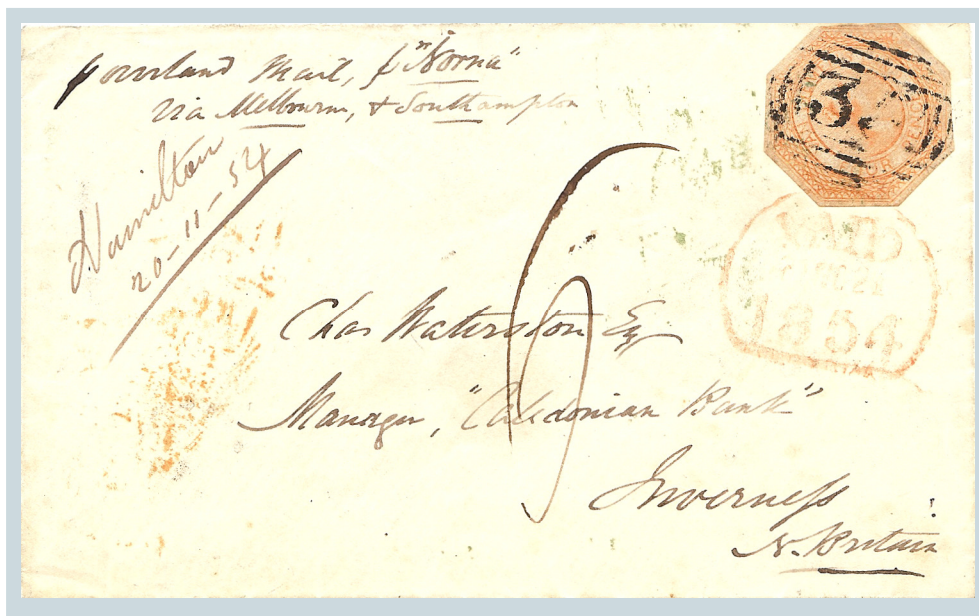 p overland Mail, p "Norna"
via Melbourne, & Southampton
Hamilton
20-11-54
PAID
1854
Chas Waterston Esq
Manager, "Caledonian Bank"
Inverness
N. Britain